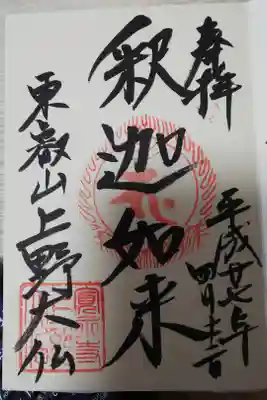 奉拝
平成廿七年
四月
釈迦如来
東叡山上野大仏